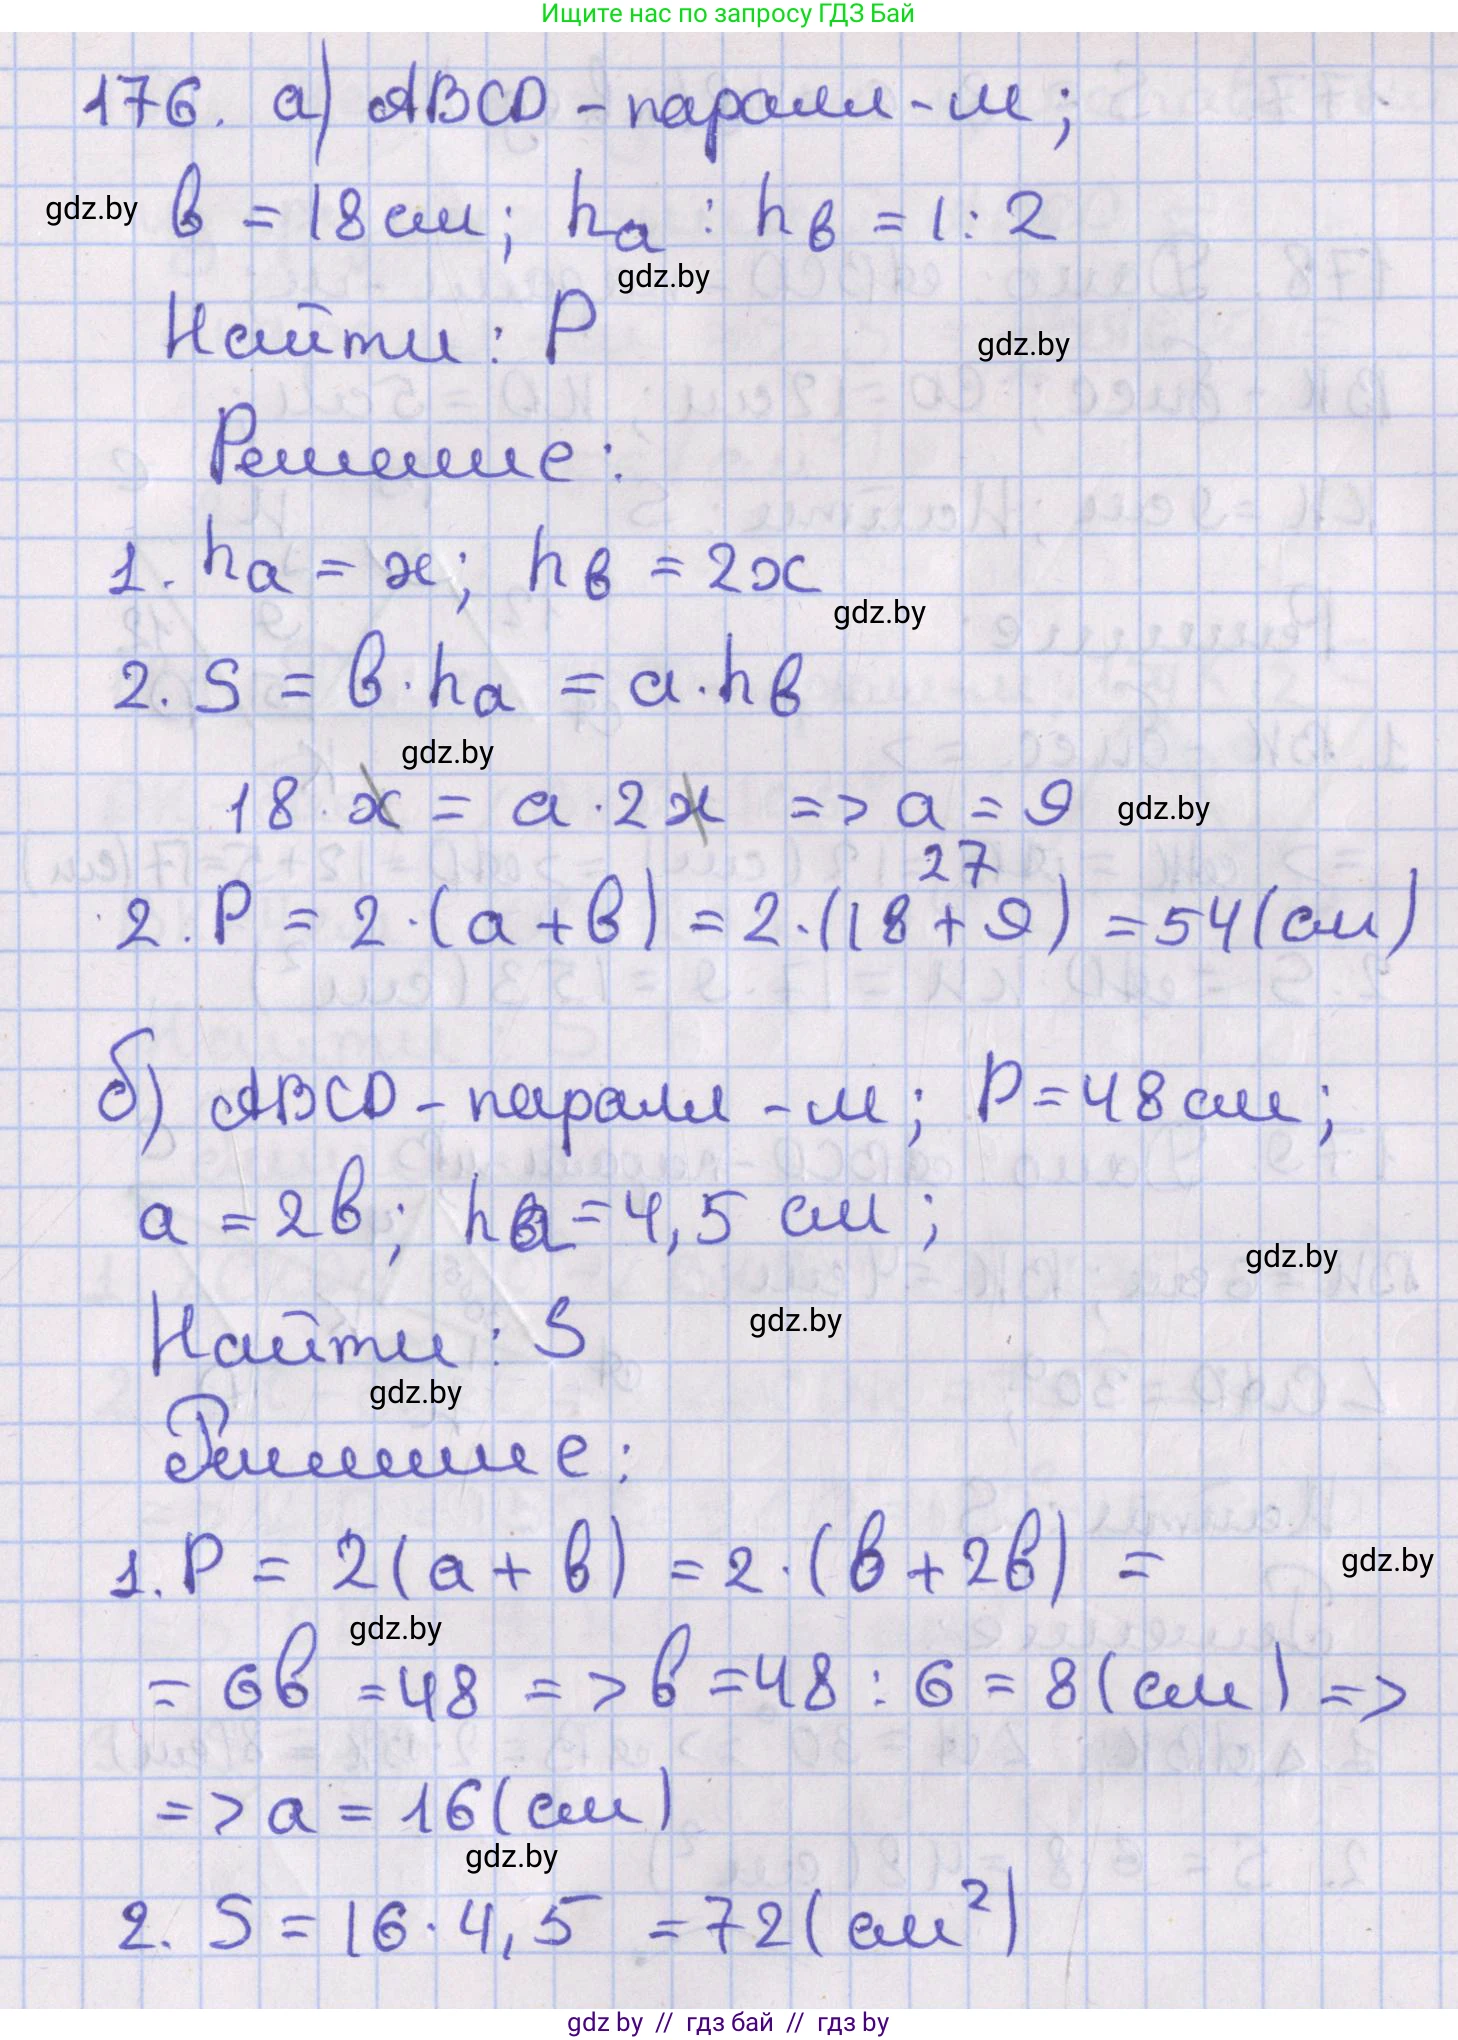 Ищите нас по запросу ГДЗ Бай
176. а) ABCD - паралл-м;
gdz.by в = 18 см; hа : hв = 1 : 2
gdz.by
Найти : P
gdz.by
Решение:
1. hа = x; hв = 2x
gdz.by
2. S = в · hа = а · hв
gdz.by
18 · x = а · 2x => а = 9 gdz.by
27
2. P = 2 · (а + в) = 2 · (18 + 9) = 54 (см)
б) ABCD - паралл-м; P = 48 см;
а = 2в; hа = 4,5 см;
gdz.by
Найти : S gdz.by
gdz.by
Решение:
1. P = 2(а + в) = 2 · (в + 2в) = gdz.by
gdz.by
= 6в = 48 => в = 48 : 6 = 8 (см) =>
=> а = 16 (см)
gdz.by
2. S = 16 · 4,5 = 72 (см²)
gdz by // гдз бай // гдз by